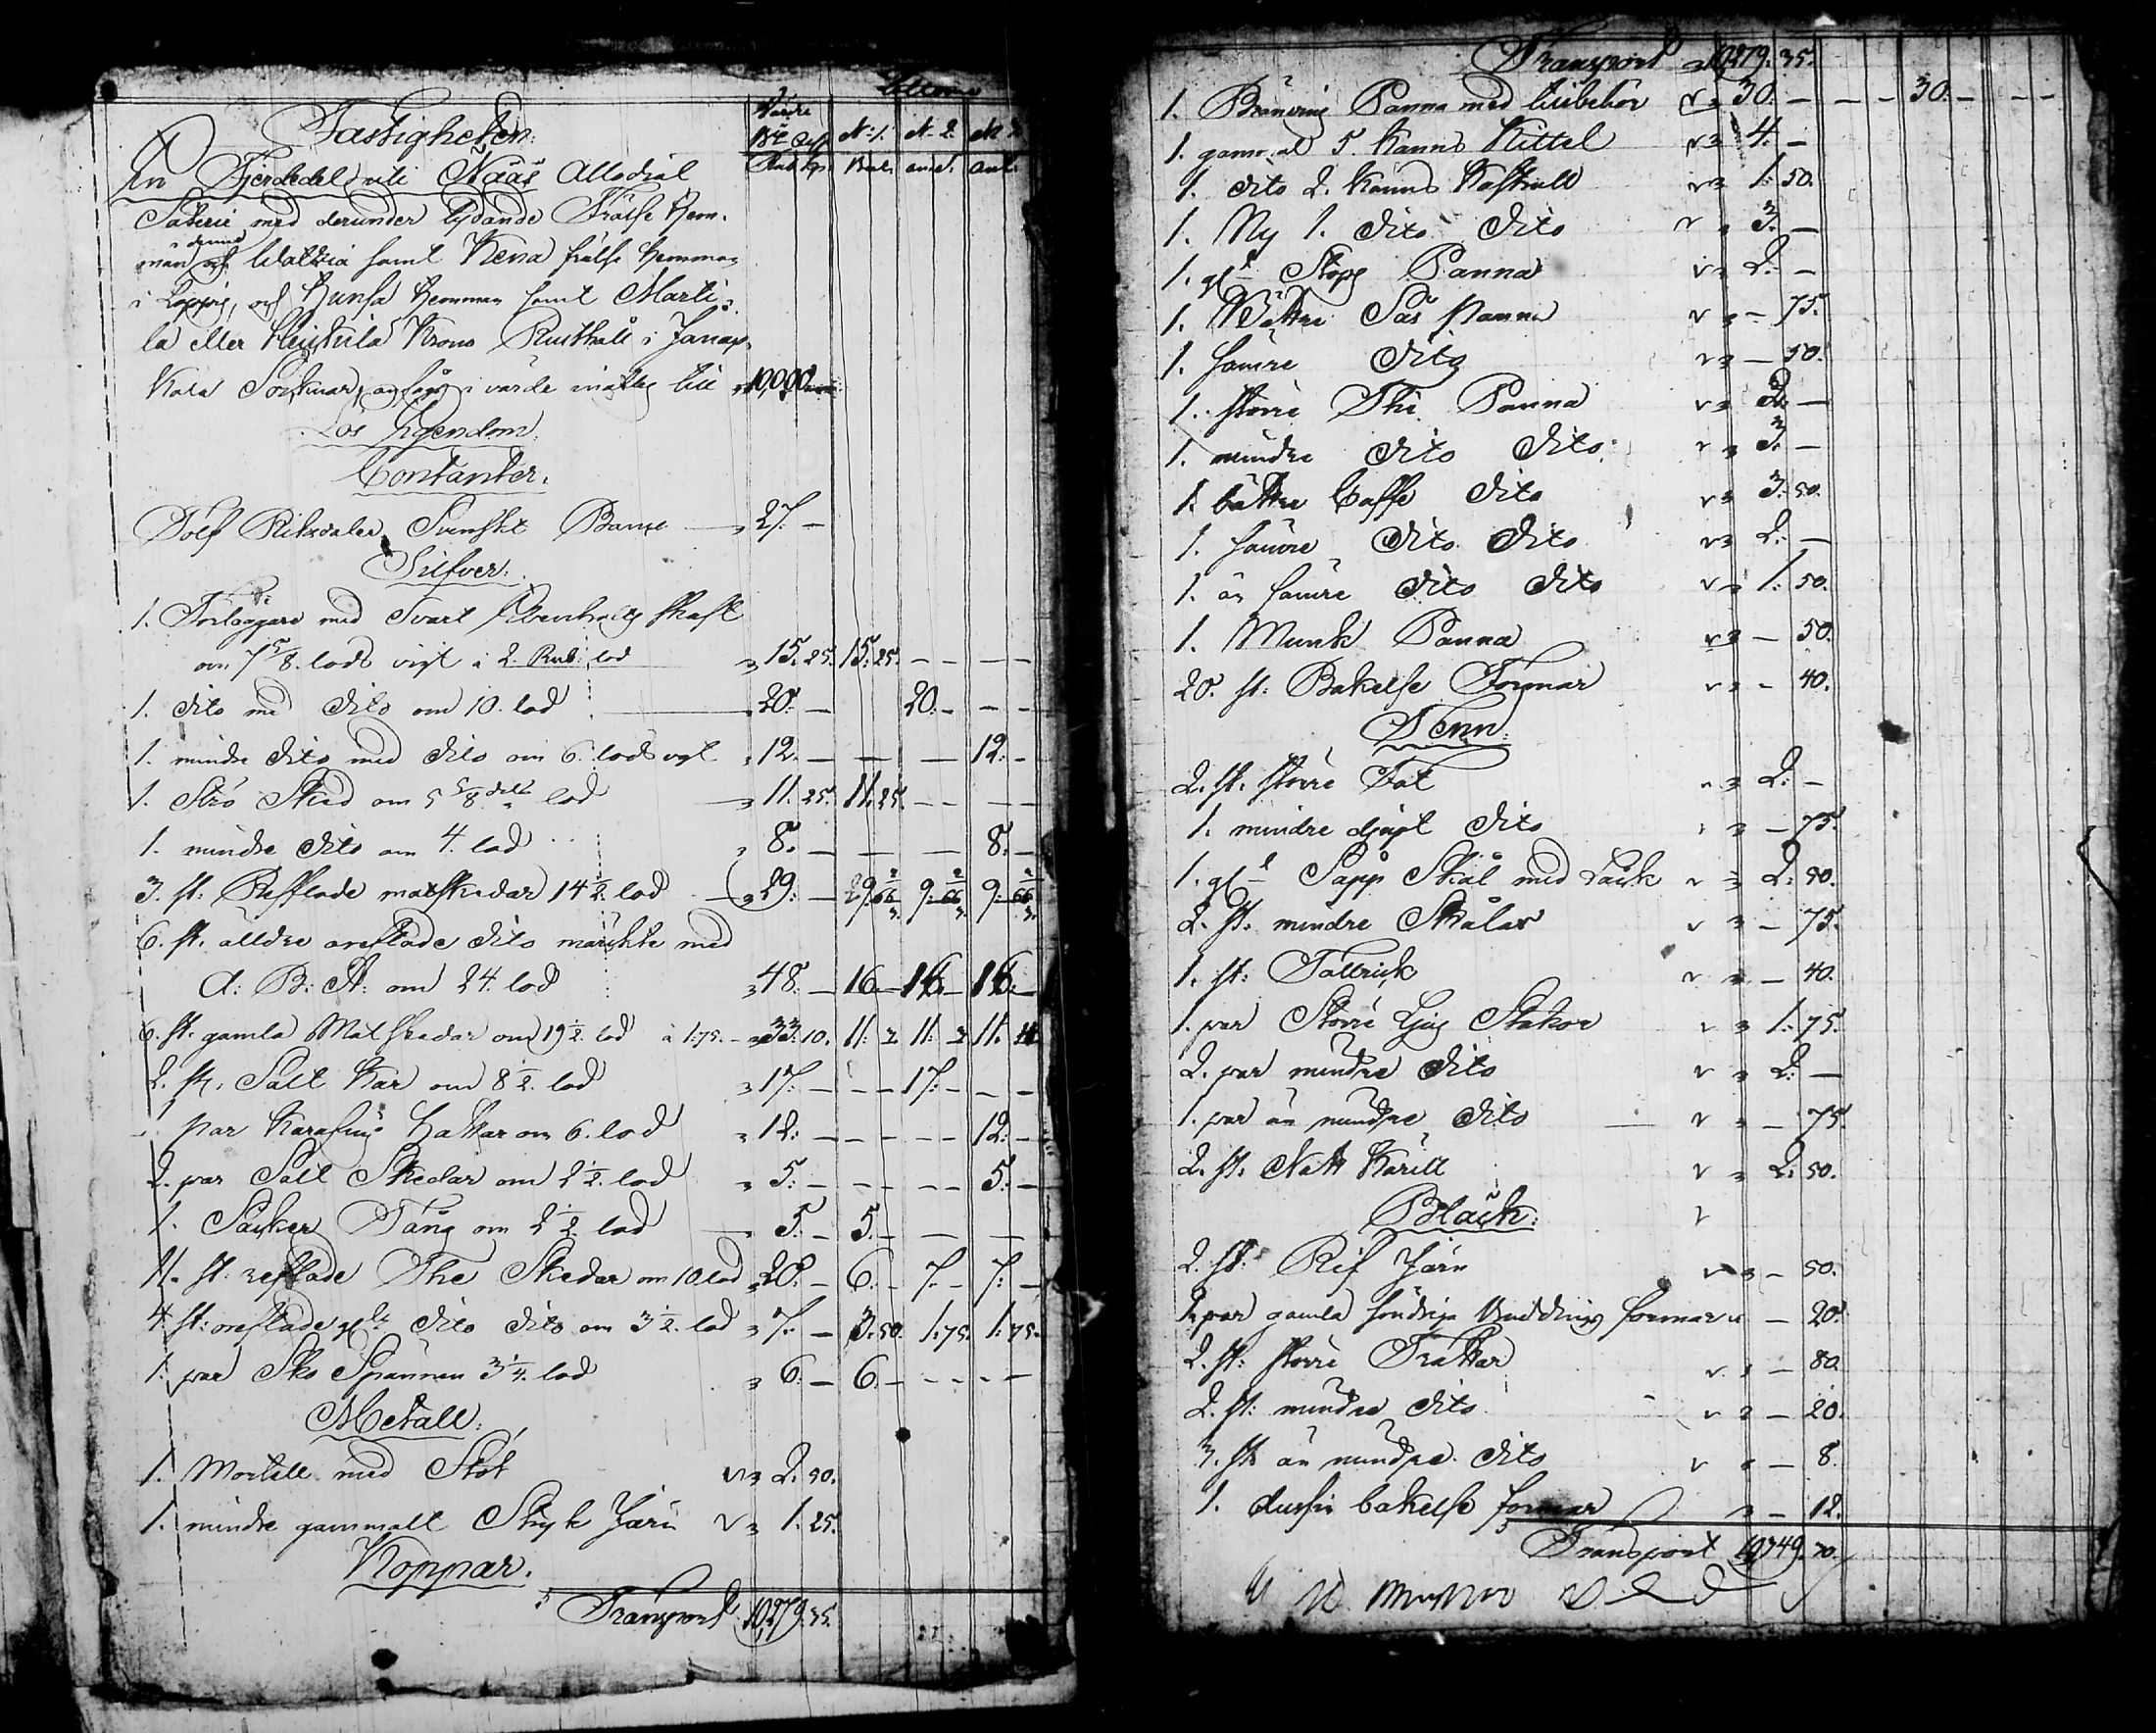 Fastigheten: Värde
B: Co Ass N:1. N. 2. N 3
En Fjerdedel uti Nääs Allodial Rub. kp.
Säterie med derunder lydande Frälse Hem-
man och Wattzia samt Kena frälse hemman
i Loppis, och Hunsa Hemman samt Marti-
la eller Heikkilä Krono Rusthåll i Janak-
kala Socknar, i värde till 10,000
Lös Egendom.
Contanter.
Tolf Riksdaler Svenskt Banco 27. —
Silfver.
1. Förläggare med Svart Ebenholtz skaft
om 7 5/8. lods vigt à 2. Rub: lod 15. 25. 15. 25. — — — —
1. dito med dito om 10. lod 20. — 20. — — —
1. mindre dito med dito om 6. lods vgt 12. — — — 12. —
1. Strö Sked om 5 5/8 delt lod 11. 25. 11. 25. — — — —
1. mindre dito om 4. lod 8. — — — 8. —
3. st: Refflade matskedar 14 1/2. lod 29. — 9: 66 2/3. 9: 66 2/3. 9: 66 2/3.
6. st. älldre oreflade dito märckte med
A: B: A: om 24. lod 48. — 16. — 16. — 16. —
6. st. gamla Matskedar om 19 1/2. lod à 1:75. — 33: 10. 11: 3 11: 3 11. 4
2. st. Salt Kar om 8 1/2. lod 17: — — — 17: — — —
1 par Karafins Hattar om 6. lod 12: — — — — — 12: —
2. par Salt Skedar om 2 1/2. lod 5: — — — — — 5: —
1. Såcker Tång om 2 1/2. lod 5. — 5. — — —
11. st: reflade The Skedar om 10. lod 20. — 6. — 7. — 7: —
4. st: oreflade gle dito dito om 3 1/2. lod 7. — 3. 50. 1: 75. 1: 75.
1. par Sko Spännen 3 1/4. lod 6. — 6. — — — — —
Metall:
1. Mortell med Stöt 2. 50.
1. mindre gammalt Stryk Järn 1. 25.
Koppar.
Transport 10,279. 35.
Transport 10279. 35.
1. Bränvins Panna med tillbehör 30. — — — 30. — — —
1. gammal 5. Kanns Kittel 4. —
1. dito 2. Kanns Kastrull 1. 50.
1. Ny 1. dito dito 3. —
1. gl Stops Panna 2. —
1. Bättre Sås Panna — 75.
1. sämre dito — 50.
1. större The Panna 3. —
1. mindre dito dito 3. —
1. bättre Caffe dito 3: 50.
1. sämre dito dito 2. —
1. än sämre dito dito 1. 50.
1. Munk Panna — 50.
20. st: Bakelse Formar — 40.
Tenn:
2. st. större Fat 2. —
1. mindre djupt dito — 75.
1. gl Såpp Skål med Låck 2: 50.
2. st. mindre Skålar — 75.
1. st: Tallrick — 40.
1. par Större Ljus Stakar 1: 75.
2. par mindre dito 2: —
1. par än mindre dito — 75.
2. st. Natt Käril 2: 50.
Bläck:
2. st: Rif Järn — 50.
1. par gamla söndriga Puddings formar — 20.
2. st: större Trattar — 80.
2. st: mindre dito — 20.
3. st än mindre dito — 8.
1. dussin bakelse formar — 12.
Transport 10349. 70.